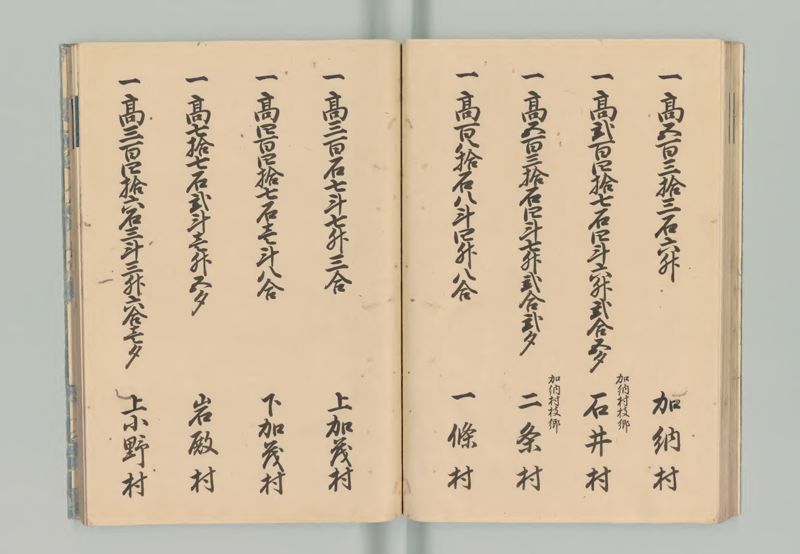 一 高五百三拾三石六升
加納村
一 高弐百四拾七石四斗六升弐合五夕
加納村枝郷
石井村
一 高五百三拾石四斗七升弐合弐夕
加納村枝郷
二条村
一 高百八拾石八斗四升八合
一條村
一 高三百石七斗七升三合
上加茂村
一 高四百四拾七石壱斗八合
下加茂村
一 高七拾七石弐斗壱升五夕
岩殿村
一 高三百四拾六石三斗三升六合壱夕
上小野村